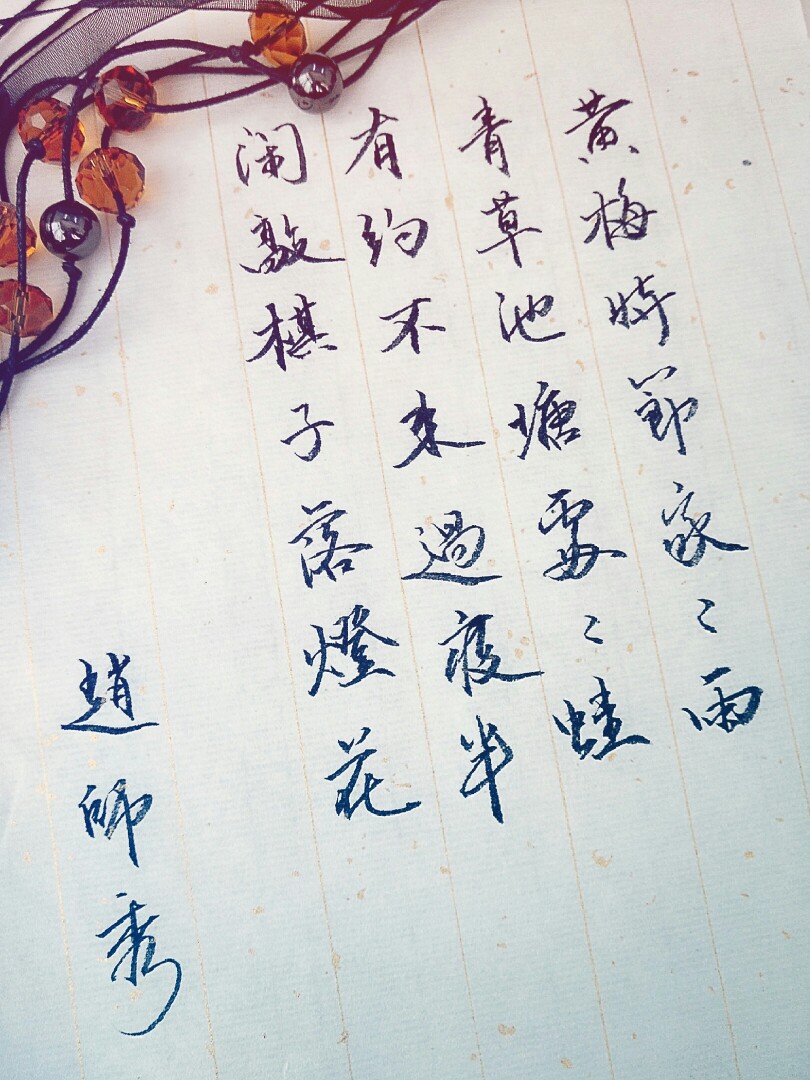 黄梅時節家〻雨
青草池塘處〻蛙
有約不来過夜半
闲敲棋子落燈花
趙師秀